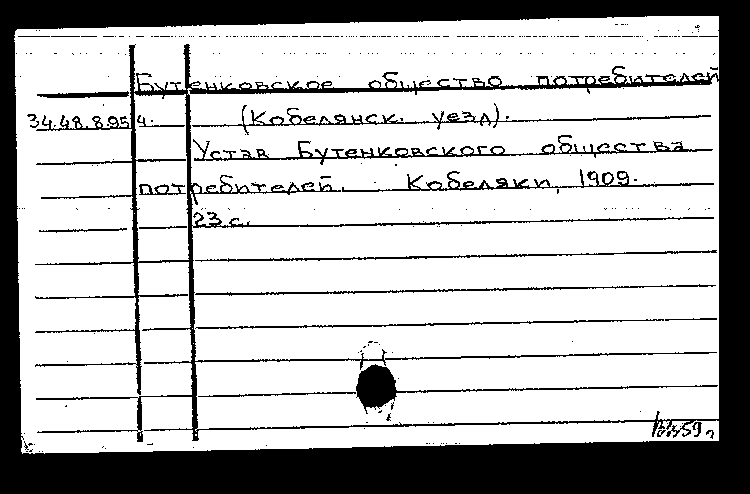 Бутенковское общество потребителей
34.48.8.95 ч. (Кобелянск. уезд).
Устав Бутенковского общества
потребителей. Кобеляки, 1909.
23 с.